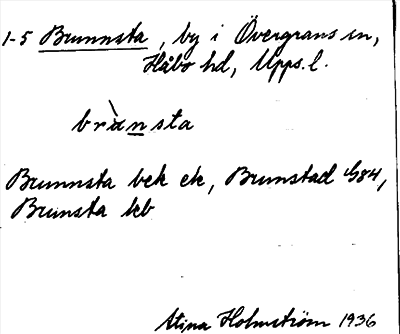 1-5 Brunnsta, by i Övergrans sn,
Håbo hd, Upps. l.
brùnsta
Brunnsta bek ek, Brunstad G84,
Brunsta kb
Stina Holmström 1936